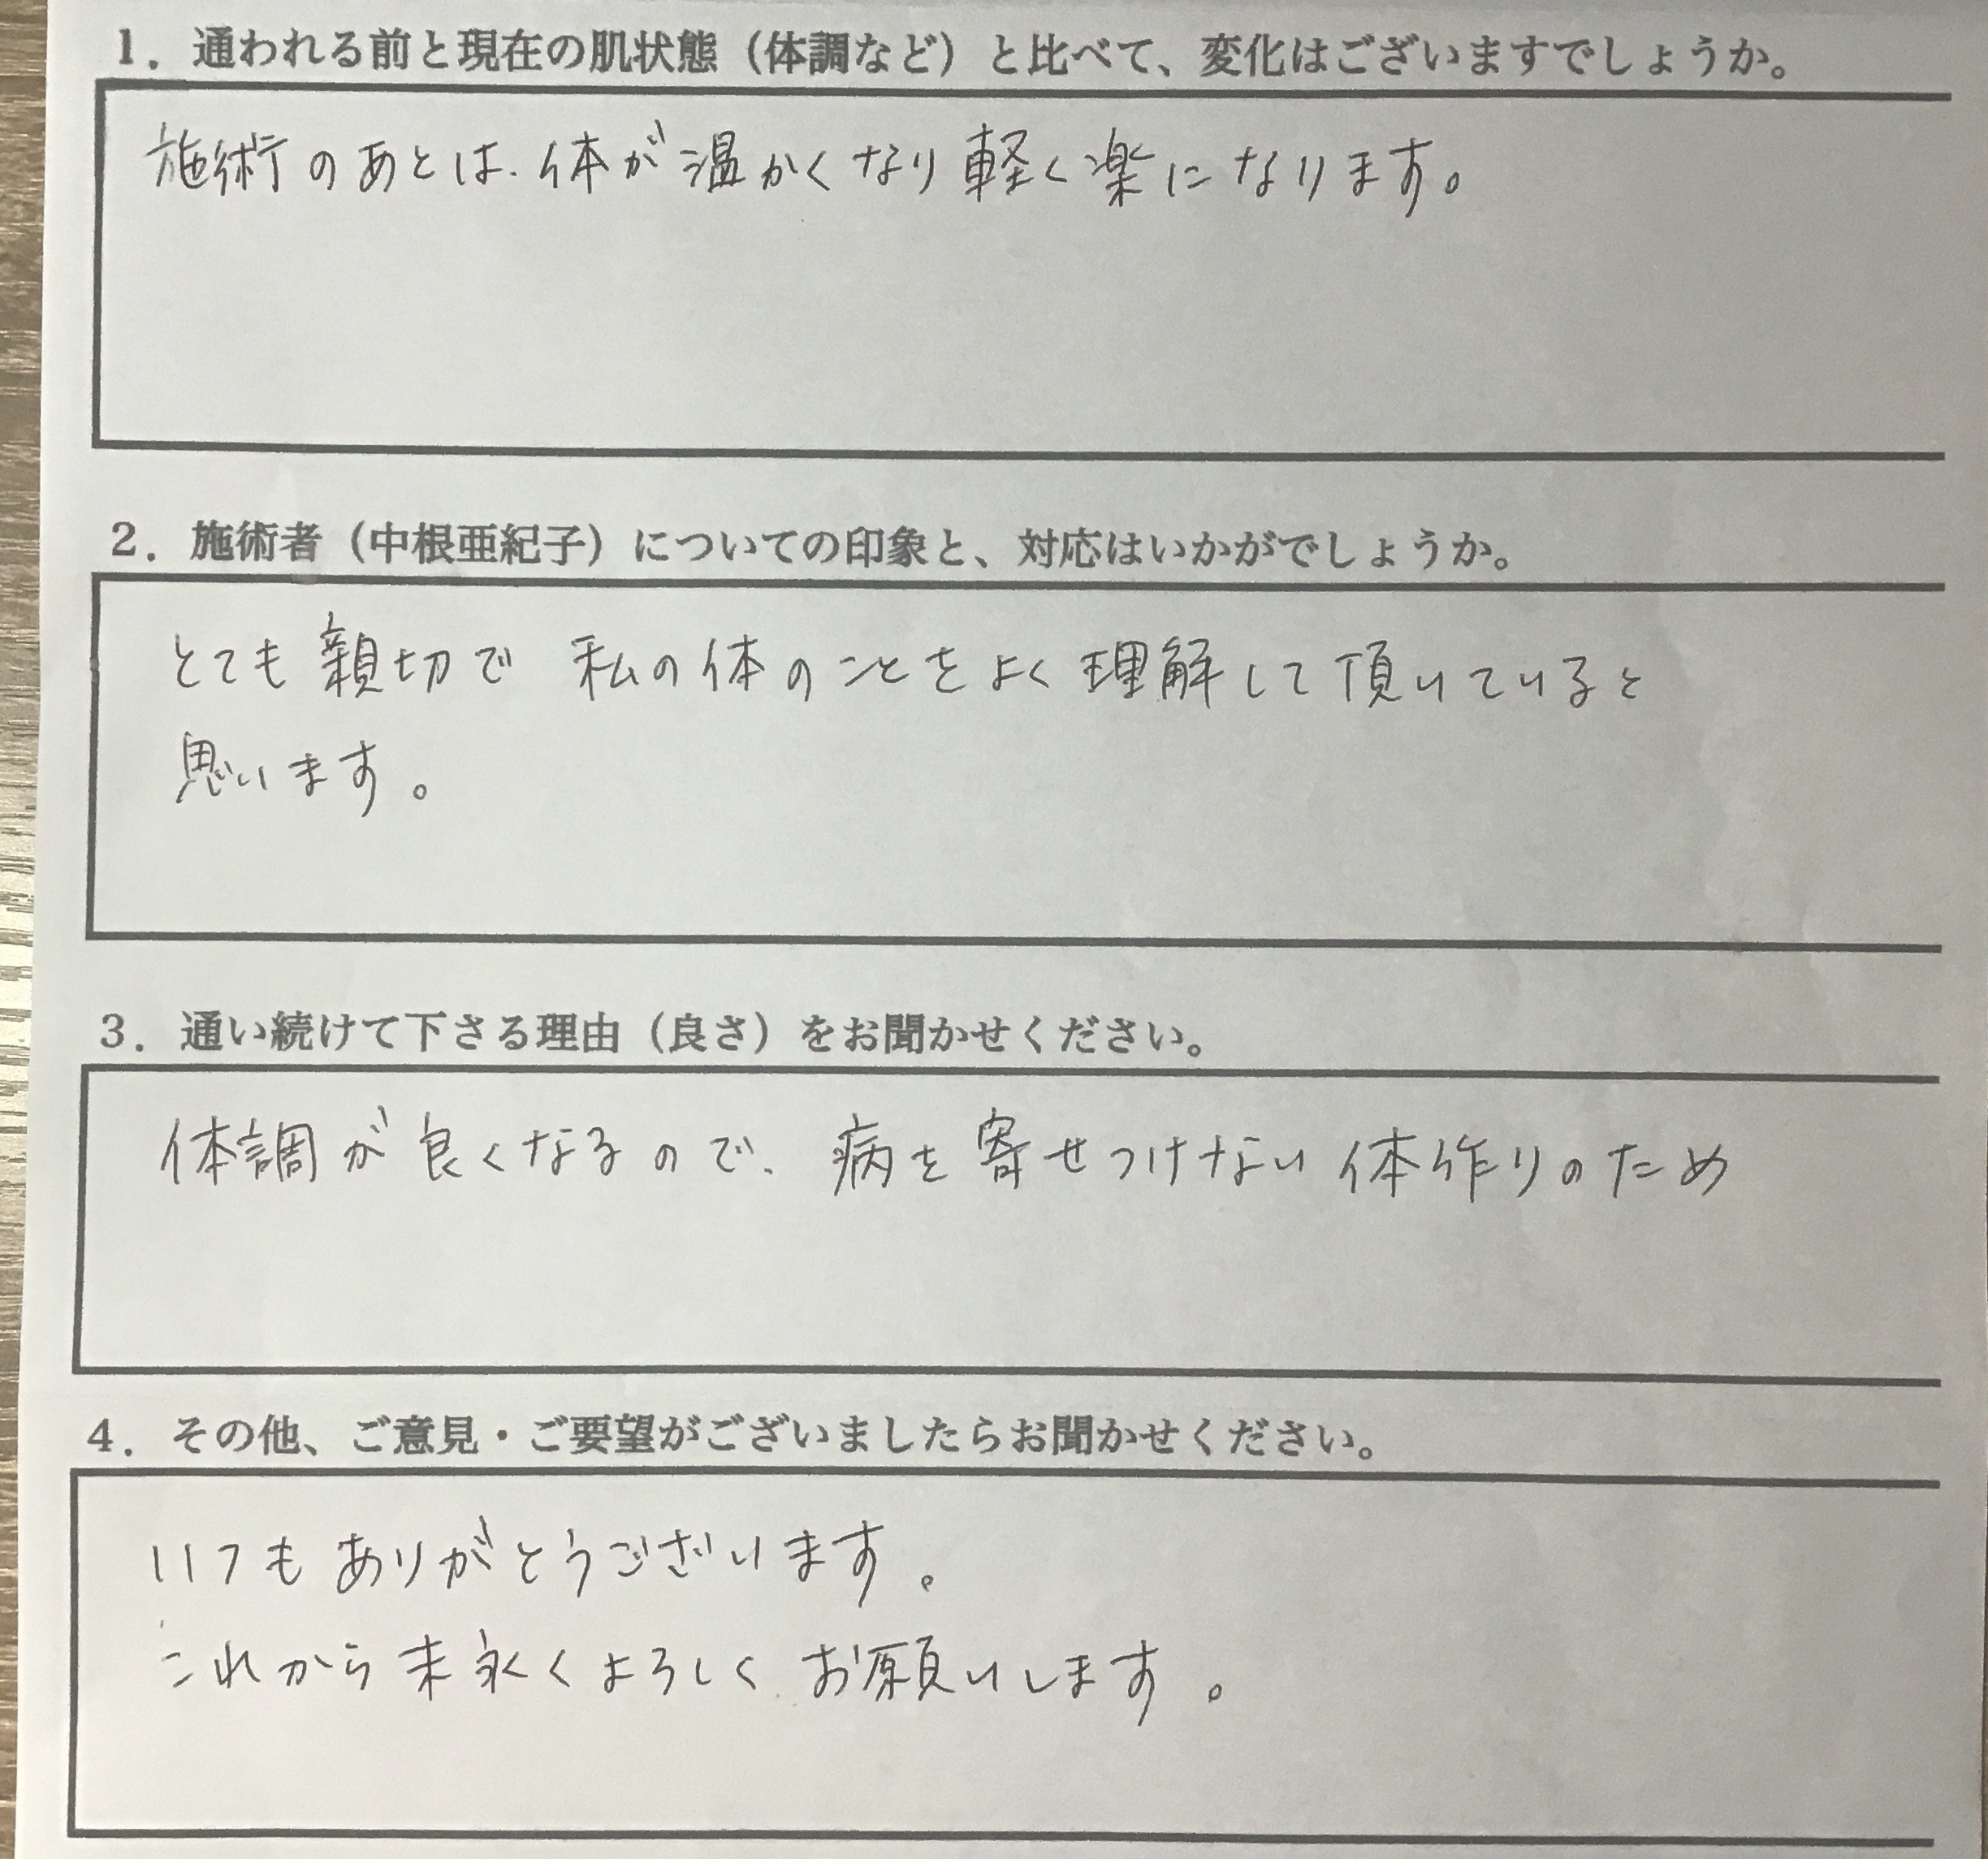 1．通われる前と現在の肌状態（体調など）と比べて、変化はございますでしょうか。
施術のあとは、体が温かくなり軽く楽になります。
2．施術者（中根亜紀子）についての印象と、対応はいかがでしょうか。
とても親切で 私の体のことをよく理解して頂いていると
思います。
3．通い続けて下さる理由（良さ）をお聞かせください。
体調が良くなるので、病を寄せつけない体作りのため
4．その他、ご意見・ご要望がございましたらお聞かせください。
いつもありがとうございます。
これから末永くよろしくお願いします。